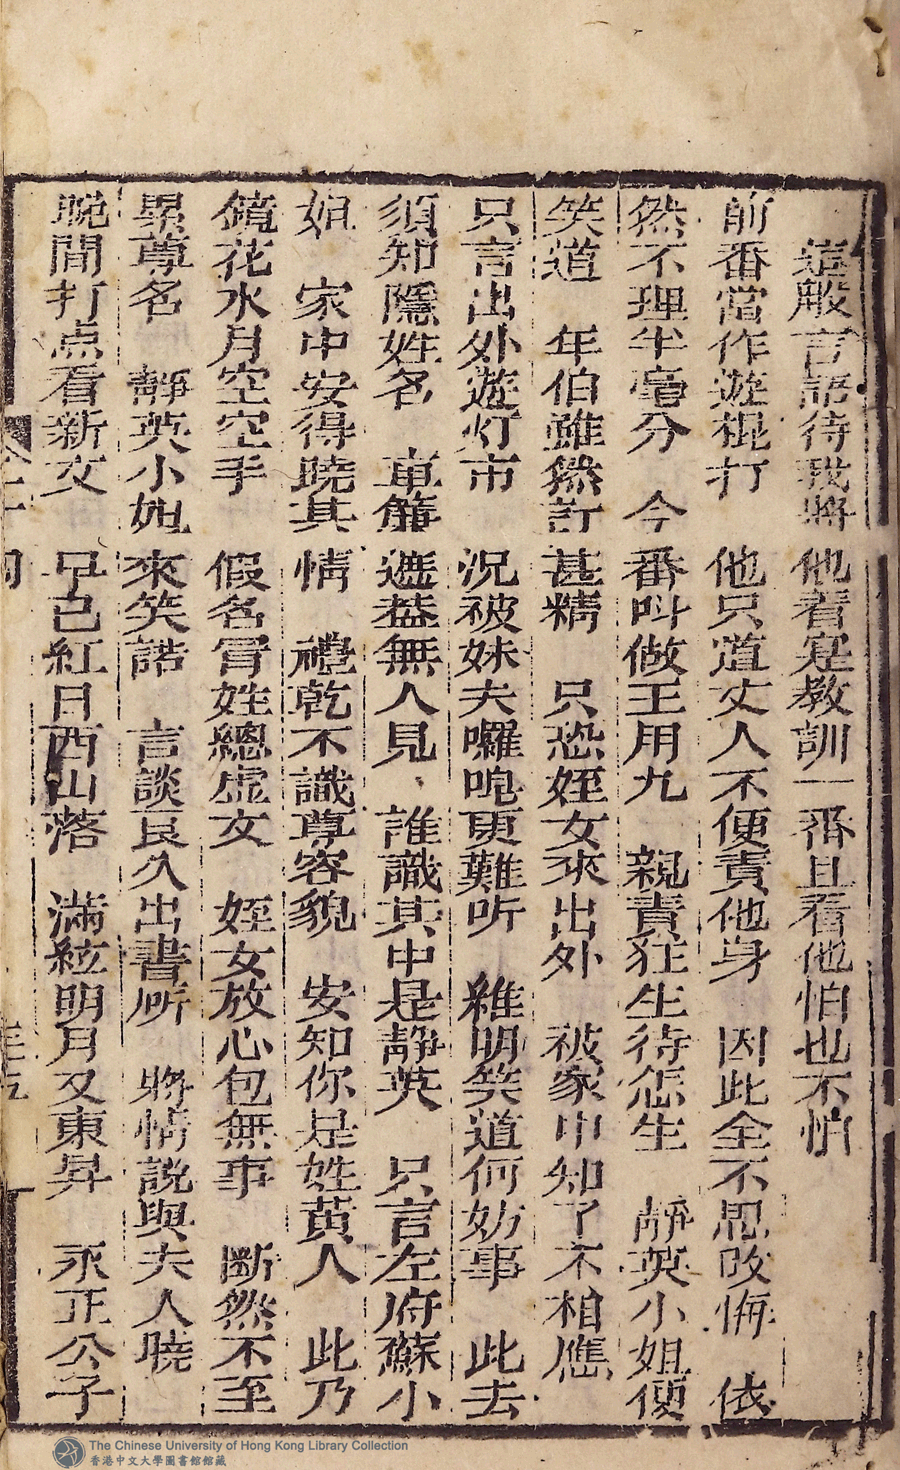 這般言語待我將他着寔教訓一番且看他怕也不怕
前番當作遊棍打 他只道丈人不便責他身 因此全不思改悔 依
然不理半毫分 今番叫做王用九 親責狂生待怎生 靜英小姐便
笑道 年伯雖然訂甚精 只恐姪女來出外 被家中知了不相應
只言出外遊灯市 況被妹夫囉唣更難听 維明笑道何妨事 此去
須知隱姓名 車簾遮蓋無人見、誰識其中是靜英 只言左府蘇小
姐 家中安得曉其情 禮乾不識尊容貌 安知你是姓黃人 此乃
鏡花水月空空手 假名冐姓總虛文 姪女放心包無事 斷然不至
累尊名 靜英小姐來笑諾 言談良久出書所 將情説與夫人曉
晚間打点看新文 早已紅日西山落 滿絃明月又東昇 永正公子
The Chinese University of Hong Kong Library Collection
香港中文大學圖書館館藏